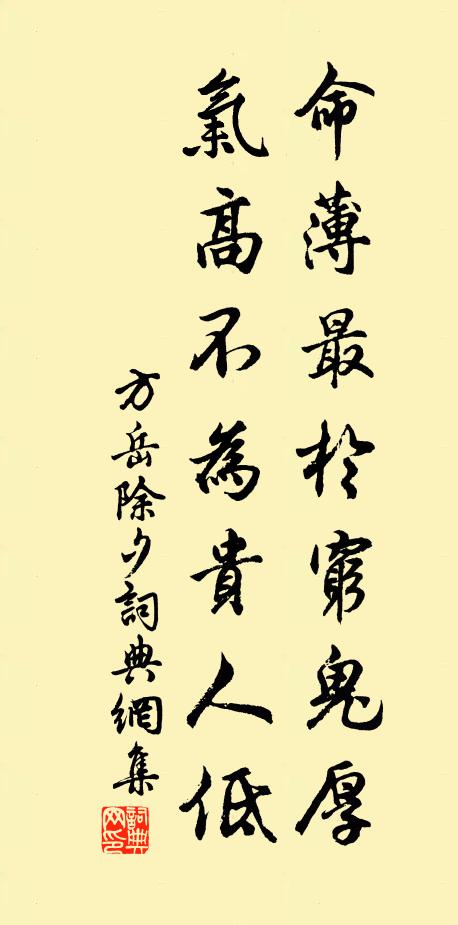 命薄最於窮鬼厚
氣高不為貴人低
方岳除夕詞典網集
詞典网印